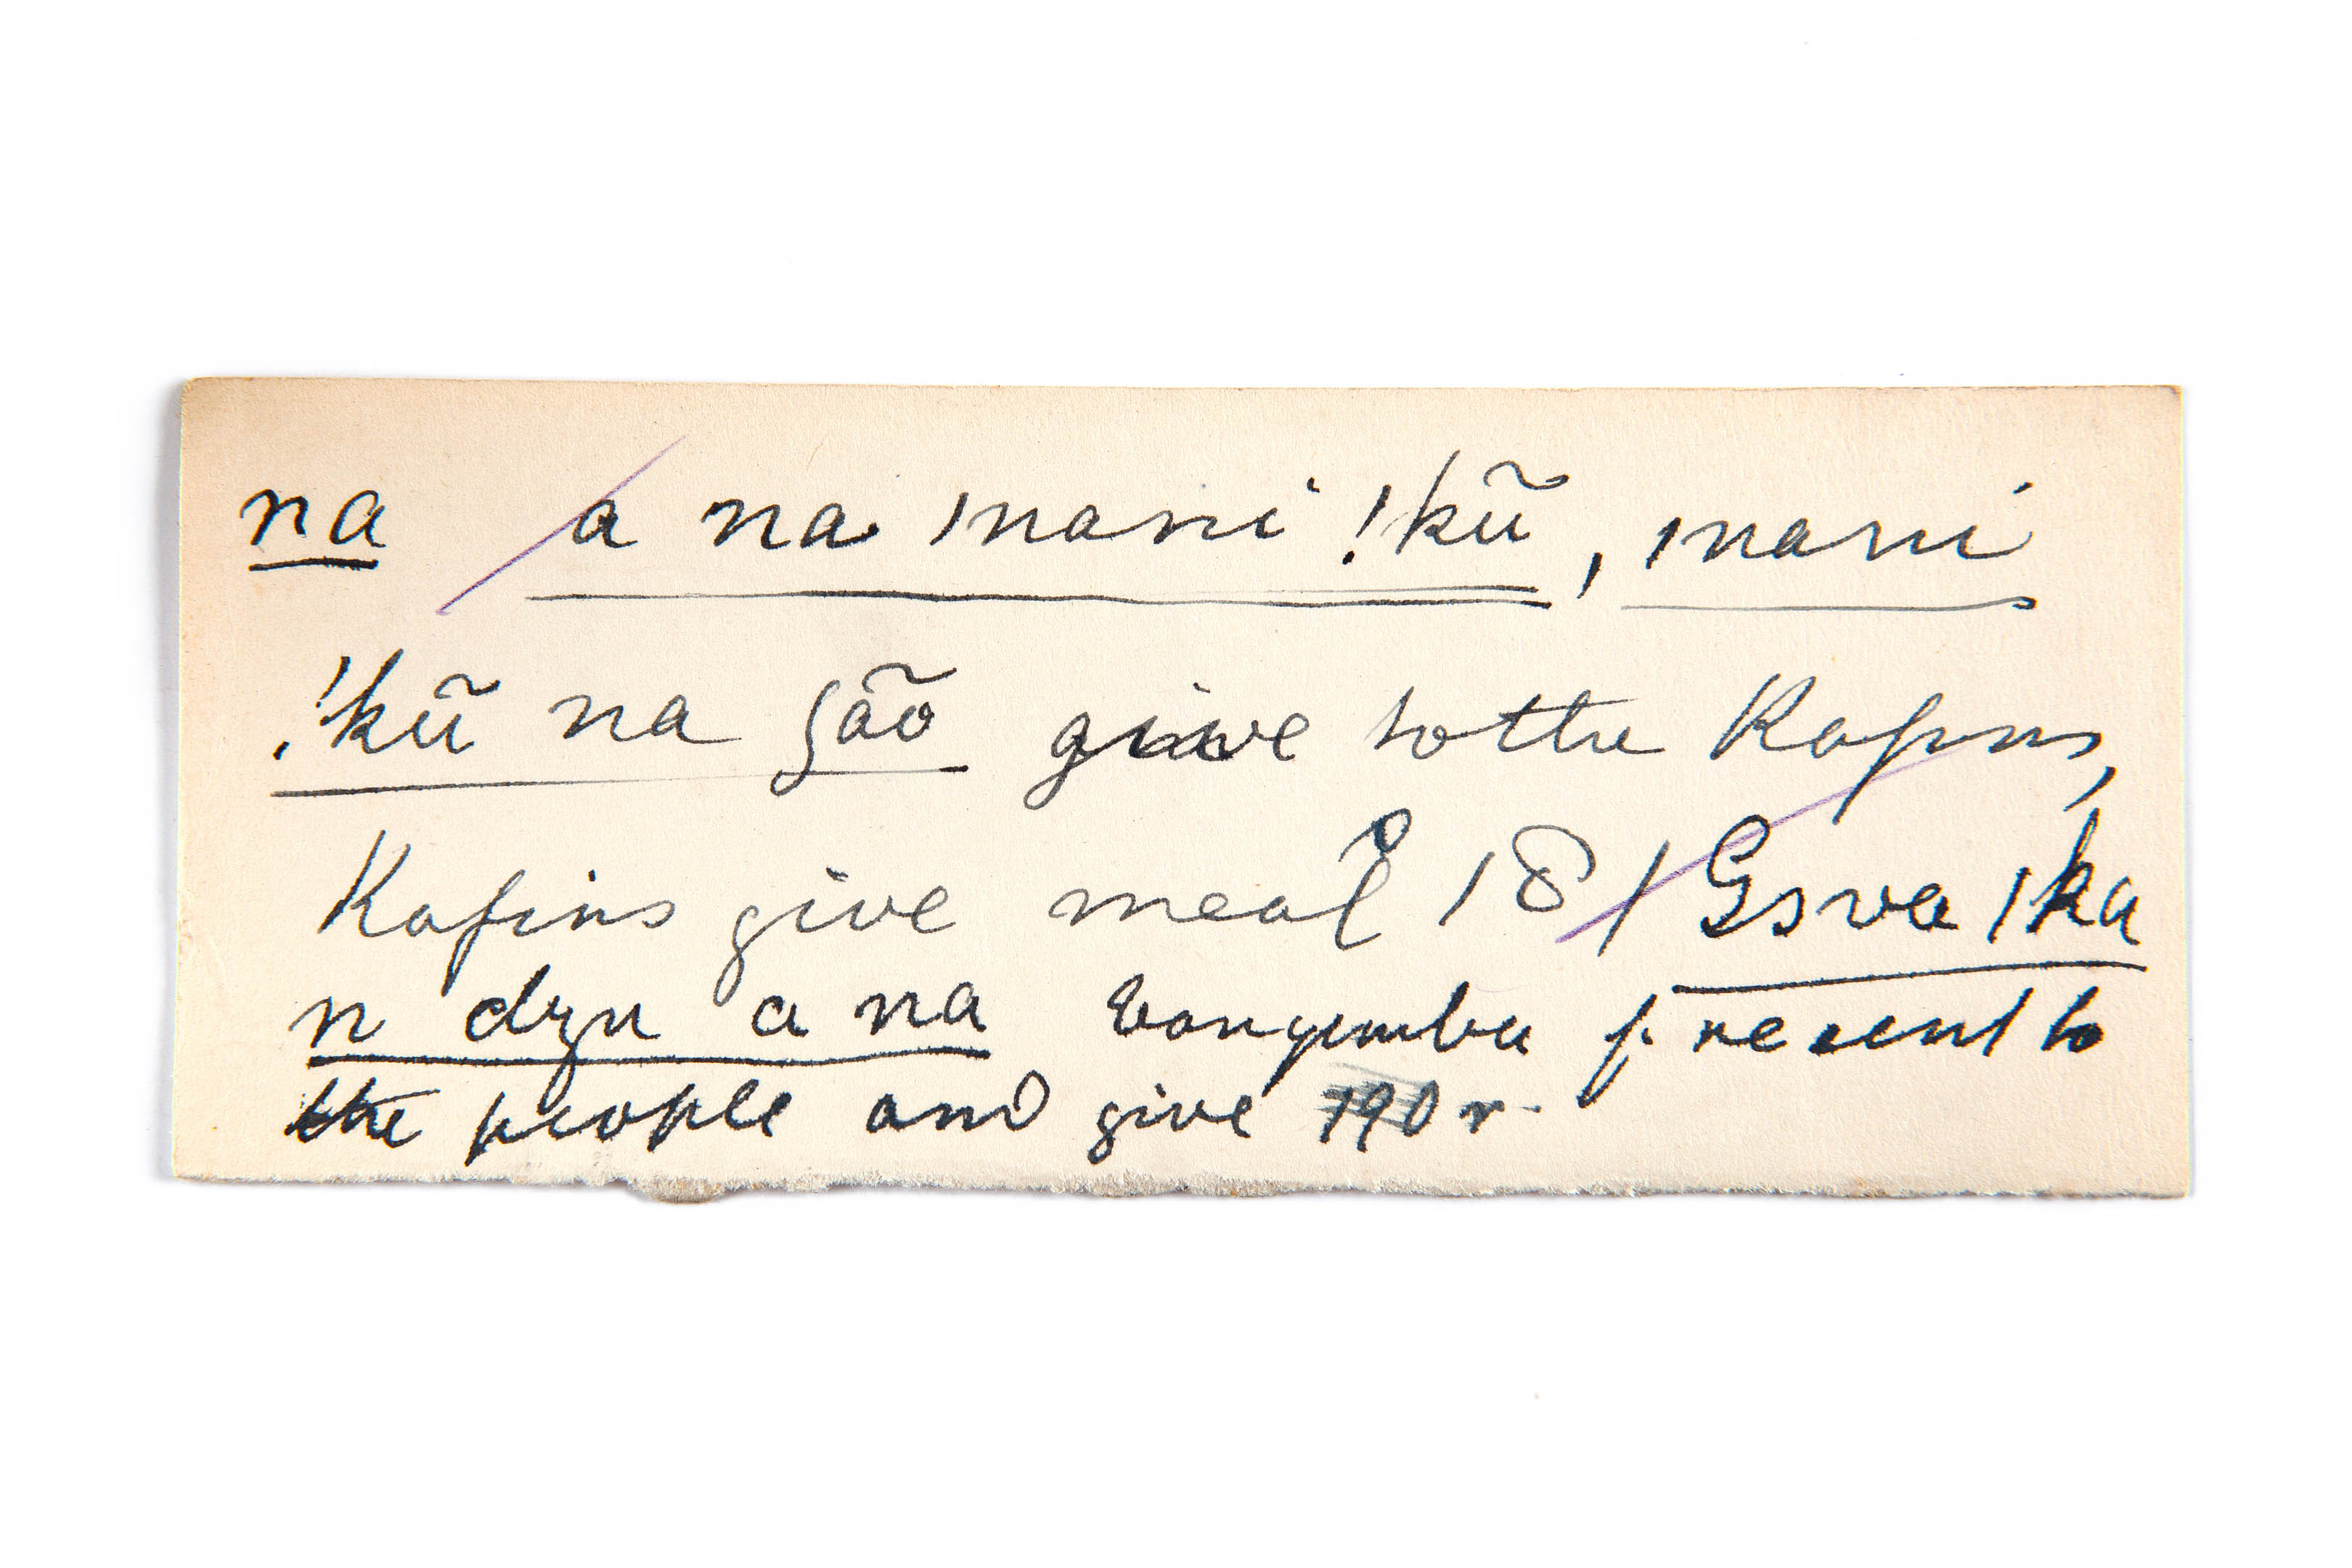 na a na ınani !kũ, ınani
!kũ na ʕão give to the Kafirs,
Kafirs give meal 181 Gsva ıka
n dzu a na present to
the people and give 190 r.